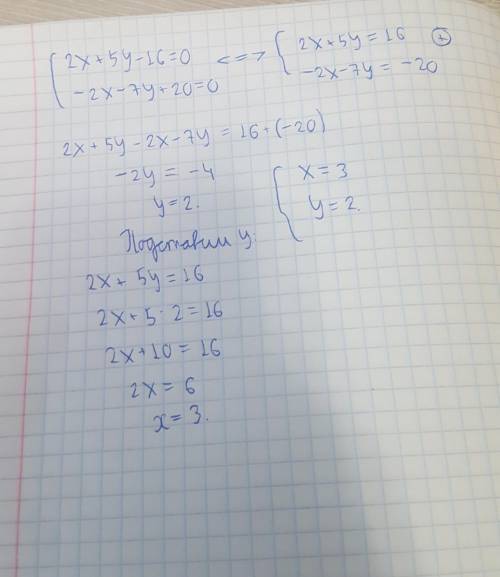 { 2x+5y-16=0 <=> { 2x+5y=16 (+)
-2x-7y+20=0 -2x-7y=-20
2x+5y-2x-7y=16+(-20)
-2y=-4 { x=3
y=2. y=2.
Подставим y:
2x+5y=16
2x+5·2=16
2x+10=16
2x=6
x=3.